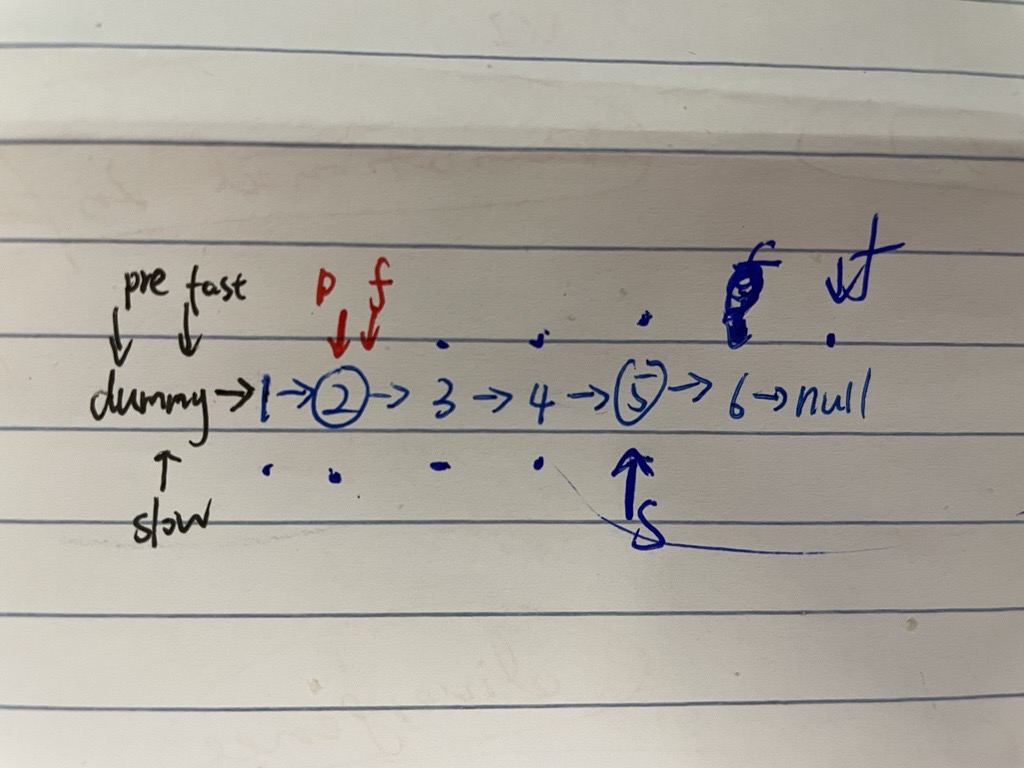 pre fast p f f f
dummy → 1 → 2 → 3 → 4 → 5 → 6 → null
slow S